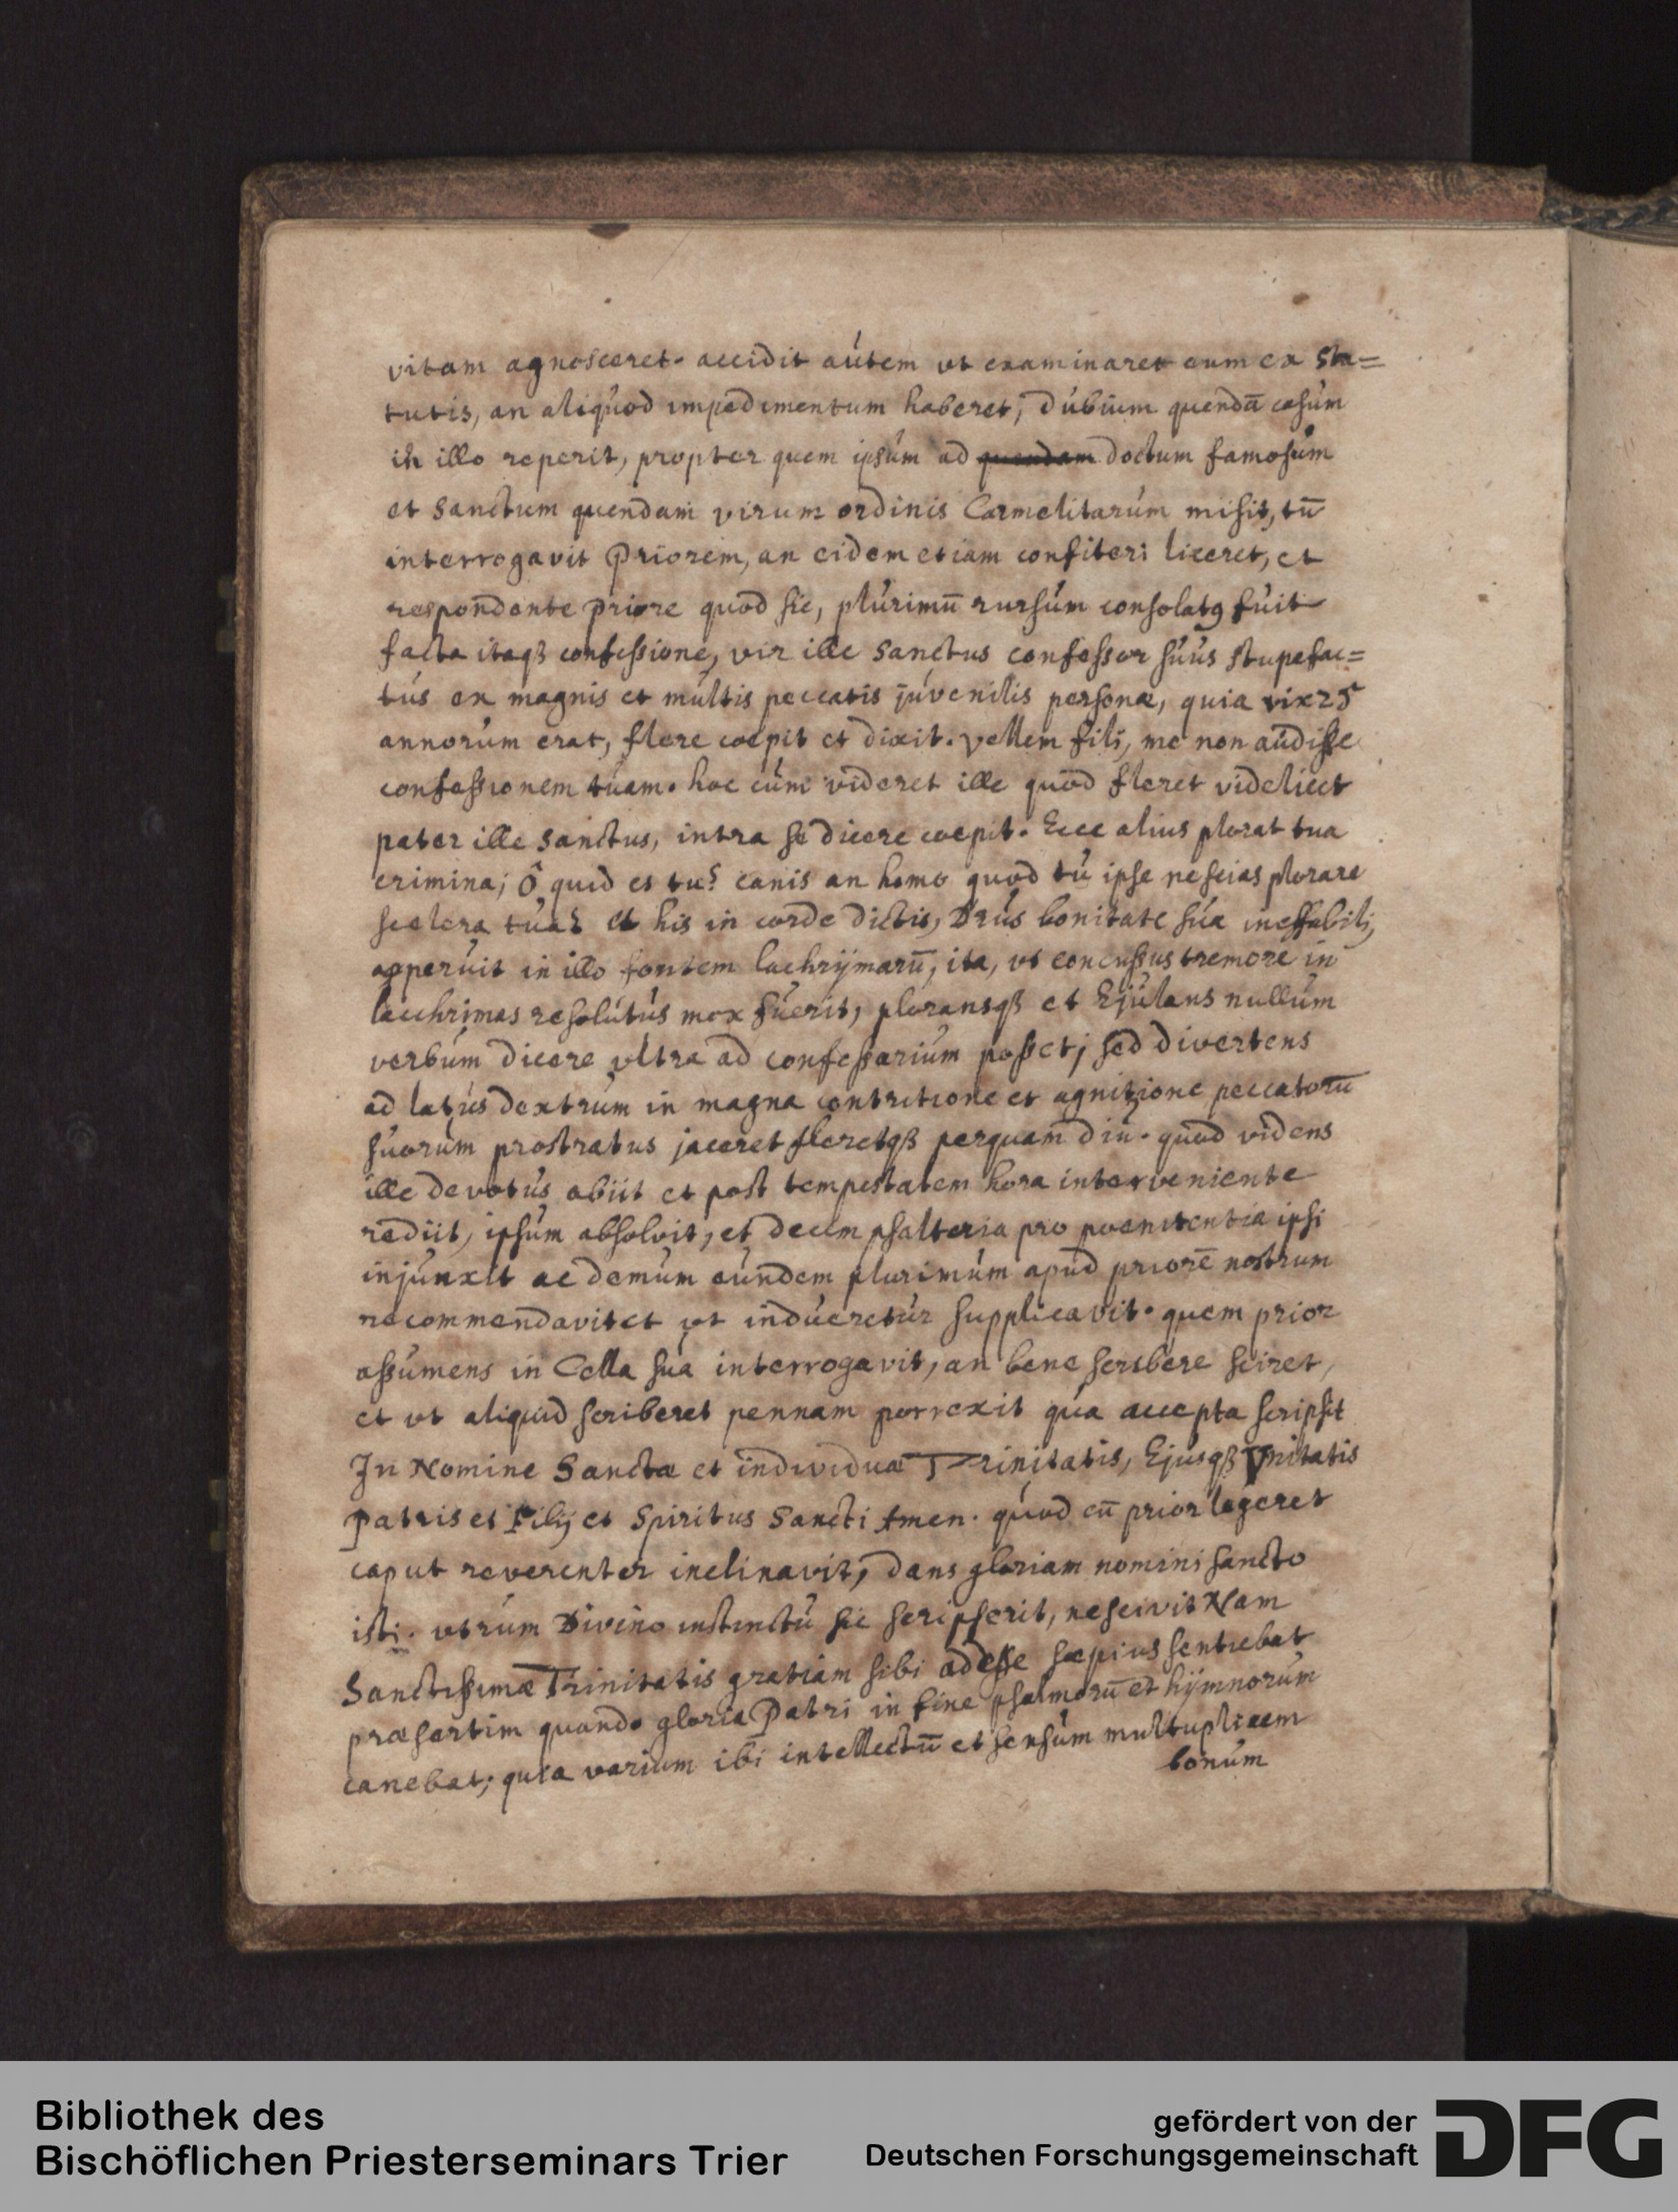 vitam agnosceret. accidit aútem vt examinaret eum ex sta=
tutis, an aliqúod impedimentum haberet, dúbium quendā casúm
in illo reperit, propter quem ipsúm ad quendam doctum famosúm
et Sanctum quendam virum ordinis Carmelitarúm misit, tū
interrogavit Priorem, an eidem etiam confiteri liceret, et
respondente priore quod sic, plúrimū rursúm consolatꝯ fúit
facta itaqß confeßione, vir ille Sanctus confeßor súús stupefac=
tús ex magnis et múltis peccatis júvenilis personæ, quia vix 25
annorúm erat, flere coepit et dixit. vellem fili, me non aúdiße
confeßionem túam. hoc cúm videret ille quod fleret videlicet
pater ille Sanctus, intra se dicere coepit. Ecce alius plorat tua
crimina; ô quid es tu? canis an homo quod tú ipse nescias plorare
scelera túa? et his in corde dictis, Dn̄s bonitate súa ineffabili,
apperúit in illo fontem lachrÿmarū, ita, vt concußus tremore in
lacchrimas resolútús mox fúerit, ploransqß et Ejúlans nullúm
verbúm dicere vltra ad confeßariúm poßet; sed divertens
ad latús dextrúm in magna contritione et agnitione peccatorū
súorúm prostratus jaceret fleretqß perquam diú. quod videns
ille devotús abiit et post tempestatem hora interveniente
rediit, ipsúm absolvit, et decem psalteria pro poenitentia ipsi
injúnxit ac demúm eúndem plurimúm apúd priorē nostrum
recommendavitet vt indúeretúr supplicavit. quem prior
aßúmens in Cella súa interrogavit, an bene scribere sciret,
et vt aliquid scriberet pennam porrexit qúa accepta scripsit
In Nomine Sanctæ et individuæ Trinitatis, Ejúsqß Vnitatis
Patris et Filij et Spiritus Sancti Amen. qúod cū prior legeret
caput reverenter inclinavit, dans gloriam nomini sancto
isti. vtrúm Divino instinctú sic scripserit, nescivit Nam
Sanctißimæ Trinitatis gratiam sibi adeße sæpius sentiebat
præsertim quando gloria Patri in fine psalmorū et hÿmnorúm
canebat; quia varium ibi intellectū et sensúm multuplicem
bonúm
Bibliothek des
Bischöflichen Priesterseminars Trier
gefördert von der
Deutschen Forschungsgemeinschaft
DFG